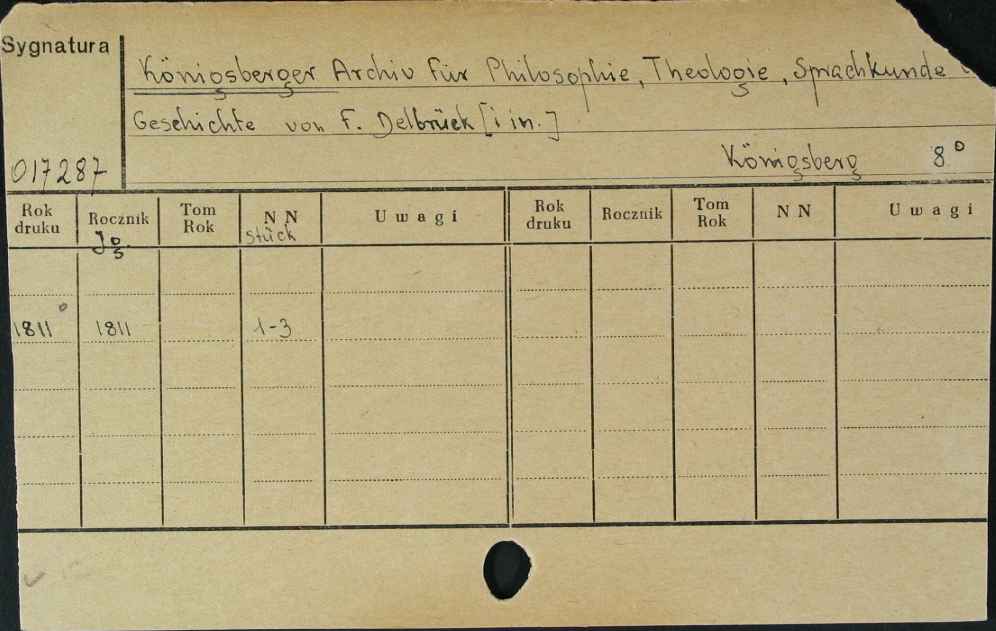 Sygnatura
Königsberger Archiv für Philosophie, Theologie, Sprachkunde
Geschichte von F. Delbrück [i in.]
Königsberg 8°
017287
Rok druku Rocznik Tom Rok NN Uwagi Rok druku Rocznik Tom Rok NN Uwagi
Jg. Stück
1811° 1811 1-3